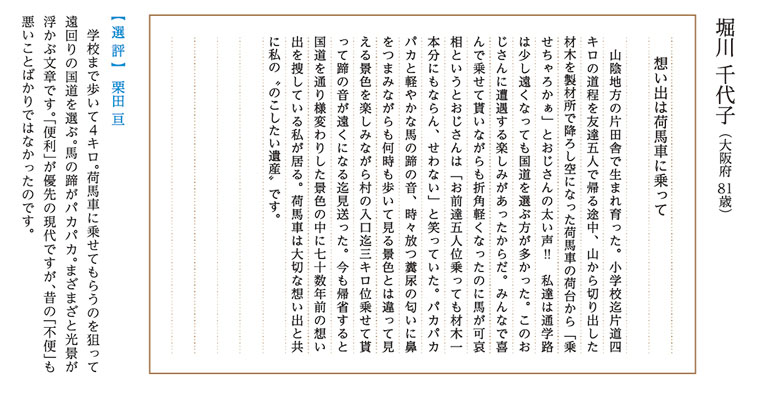 堀川 千代子（大阪府 81歳）
想い出は荷馬車に乗って
山陰地方の片田舎で生まれ育った。小学校迄片道四
キロの道程を友達五人で帰る途中、山から切り出した
材木を製材所で降ろし空になった荷馬車の荷台から「乗
せちゃろかぁ」とおじさんの太い声‼ 私達は通学路
は少し遠くなっても国道を選ぶ方が多かった。このお
じさんに遭遇する楽しみがあったからだ。みんなで喜
んで乗せて貰いながらも折角軽くなったのに馬が可哀
相というとおじさんは「お前達五人位乗っても材木一
本分にもならん、せわない」と笑っていた。パカパカ
パカと軽やかな馬の蹄の音、時々放つ糞尿の匂いに鼻
をつまみながらも何時も歩いて見る景色とは違って見
える景色を楽しみながら村の入口迄三キロ位乗せて貰
って蹄の音が遠くになる迄見送った。今も帰省すると
国道を通り様変わりした景色の中に七十数年前の想い
出を捜している私が居る。荷馬車は大切な想い出と共
に私の〝のこしたい遺産〟です。
【選評】 栗田 亘
学校まで歩いて４キロ。荷馬車に乗せてもらうのを狙って
遠回りの国道を選ぶ。馬の蹄がパカパカ。まざまざと光景が
浮かぶ文章です。「便利」が優先の現代ですが、昔の「不便」も
悪いことばかりではなかったのです。